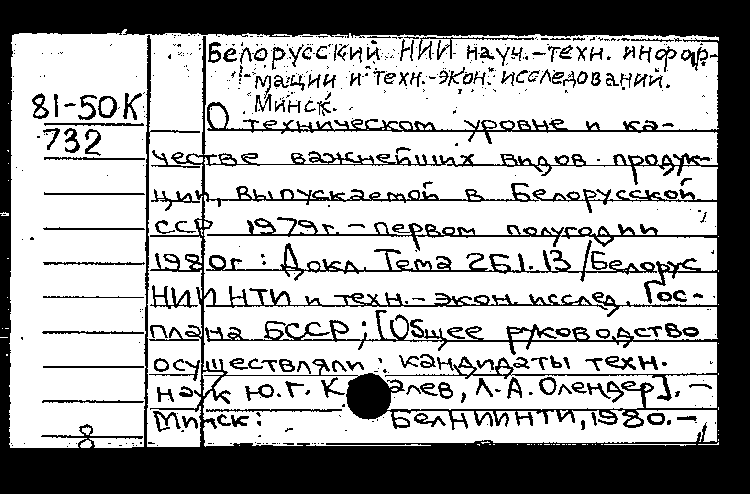 Белорусский НИИ науч.-техн. инфор-
мации и техн.-экон. исследований.
Минск.
81-50К
732
О техническом уровне и ка-
честве важнейших видов продук-
ции, выпускаемой в Белорусской
ССР 1979г. - первом полугодии
1980г : Докл. Тема 251.13 / Белорус
НИИ НТИ и техн.- экон. исслед. Гос-
плана БССР ; [Общее руководство
осуществляли : кандидаты техн.
наук Ю.Г. , Л.А. Олендер]. -
Минск : БелНИИНТИ, 1980. -
8